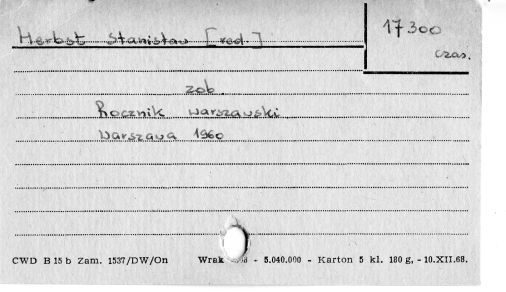 Herbst Stanisław [red.]
17300
czas.
zob.
Rocznik warszawski
Warszawa 1960
CWD B 15 b Zam. 1537/DW/On Wrak - 5.040.000 - Karton 5 kl. 180 g, - 10.XII.68.